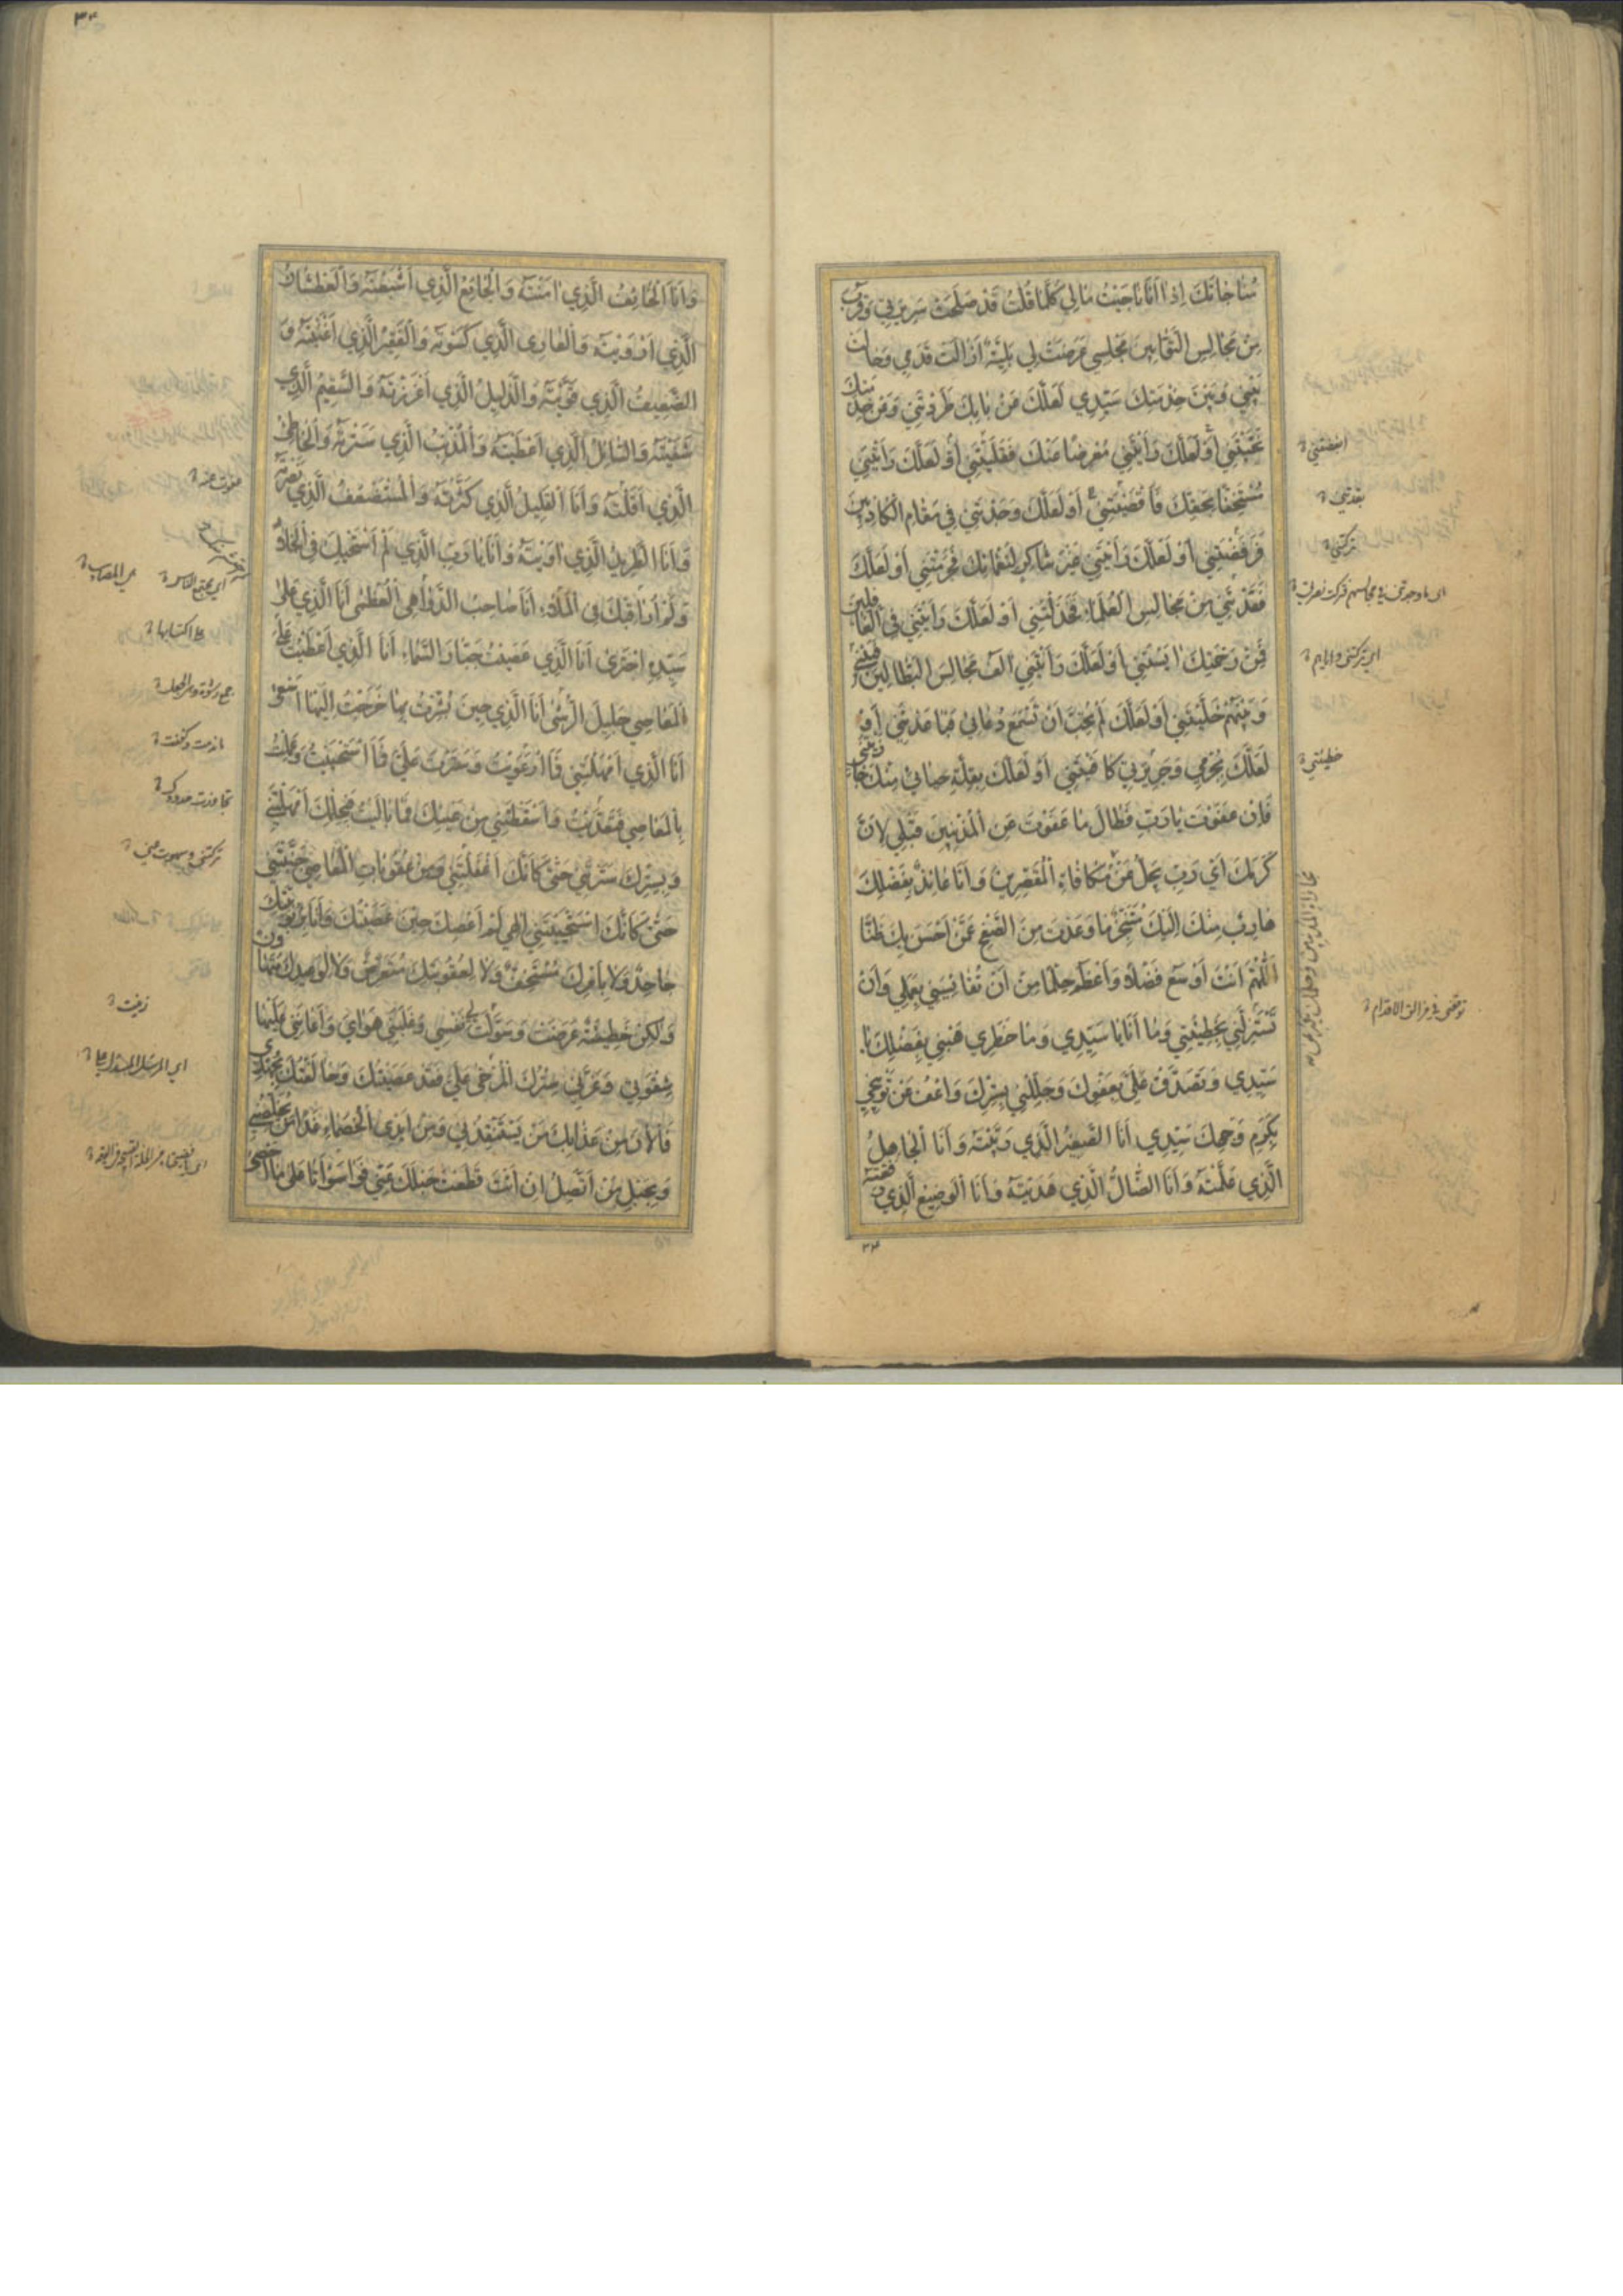 مُنَاجَاتَكَ اِذَا اَنَا نَاجَيْتُ مَالِي كُلَّمَا قُلْتُ قَدْ صَلَحَتْ سَرِيرَتِي وَقَرُبَ
مِنْ مَجَالِسِ التَّوَّابِينَ مَجْلِسِي عَرَضَتْ لِي بَلِيَّةٌ اَزَالَتْ قَدَمِي وَحَالَتْ
بَيْنِي وَبَيْنَ خِدْمَتِكَ سَيِّدِي لَعَلَّكَ عَنْ بَابِكَ طَرَدْتَنِي وَعَنْ خِدْمَتِكَ
نَحَّيْتَنِي اَوْ لَعَلَّكَ رَاَيْتَنِي مُعْرِضًا عَنْكَ فَقَلَيْتَنِي اَوْ لَعَلَّكَ رَاَيْتَنِي
مُسْتَخِفًّا بِحَقِّكَ فَاَقْصَيْتَنِي اَوْ لَعَلَّكَ وَجَدْتَنِي فِي مَقَامِ الْكَاذِبِينَ
فَرَفَضْتَنِي اَوْ لَعَلَّكَ رَاَيْتَنِي غَيْرَ شَاكِرٍ لِنَعْمَائِكَ فَحَرَمْتَنِي اَوْ لَعَلَّكَ
فَقَدْتَنِي مِنْ مَجَالِسِ الْعُلَمَاءِ فَخَذَلْتَنِي اَوْ لَعَلَّكَ رَاَيْتَنِي فِي الْغَافِلِينَ
فَمِنْ رَحْمَتِكَ اٰيَسْتَنِي اَوْ لَعَلَّكَ رَاَيْتَنِي اٰلَفُ مَجَالِسَ الْبَطَّالِينَ فَبَيْنِي
وَبَيْنَهُمْ خَلَّيْتَنِي اَوْ لَعَلَّكَ لَمْ تُحِبَّ اَنْ تَسْمَعَ دُعَائِي فَبَاعَدْتَنِي اَوْ
لَعَلَّكَ بِجُرْمِي وَجَرِيرَتِي كَافَيْتَنِي اَوْ لَعَلَّكَ بِقِلَّةِ حَيَائِي مِنْكَ جَازَيْتَنِي
فَاِنْ عَفَوْتَ يَارَبِّ فَطَالَ مَا عَفَوْتَ عَنِ الْمُذْنِبِينَ قَبْلِي لِاَنَّ
كَرَمَكَ اَيْ رَبِّ يَجِلُّ عَنْ مُكَافَاةِ الْمُقَصِّرِينَ وَاَنَا عَائِذٌ بِفَضْلِكَ
هَارِبٌ مِنْكَ اِلَيْكَ مُتَنَجِّزٌ مَا وَعَدْتَ مِنَ الصَّفْحِ عَمَّنْ اَحْسَنَ بِكَ ظَنًّا
اَللّٰهُمَّ اَنْتَ اَوْسَعُ فَضْلًا وَاَعْظَمُ حِلْمًا مِنْ اَنْ تُقَايِسَنِي بِعَمَلِي وَاَنْ
تَسْتَزِلَّنِي بِخَطِيئَتِي وَمَا اَنَا يَا سَيِّدِي وَمَا خَطَرِي هَبْنِي بِفَضْلِكَ يَا
سَيِّدِي وَتَصَدَّقْ عَلَيَّ بِعَفْوِكَ وَجَلِّلْنِي بِسِتْرِكَ وَاعْفُ عَنْ تَوْبِيخِي
بِكَرَمِ وَجْهِكَ سَيِّدِي اَنَا الصَّغِيرُ الَّذِي رَبَّيْتَهُ وَاَنَا الْجَاهِلُ
الَّذِي عَلَّمْتَهُ وَاَنَا الضَّالُّ الَّذِي هَدَيْتَهُ وَاَنَا الْوَضِيعُ الَّذِي رَفَعْتَهُ
ابغضتني
بعّدتني
تركتني
خليتني
٣٣
٣٤
وَاَنَا الْخَائِفُ الَّذِي اٰمَنْتَهُ وَالْجَائِعُ الَّذِي اَشْبَعْتَهُ وَالْعَطْشَانُ
الَّذِي اَرْوَيْتَهُ وَالْعَارِي الَّذِي كَسَوْتَهُ وَالْفَقِيرُ الَّذِي اَغْنَيْتَهُ وَ
الضَّعِيفُ الَّذِي قَوَّيْتَهُ وَالذَّلِيلُ الَّذِي اَعْزَزْتَهُ وَالسَّقِيمُ الَّذِي
شَفَيْتَهُ وَالسَّائِلُ الَّذِي اَعْطَيْتَهُ وَالْمُذْنِبُ الَّذِي سَتَرْتَهُ وَالْخَاطِئُ
الَّذِي اَقَلْتَهُ وَاَنَا الْقَلِيلُ الَّذِي كَثَّرْتَهُ وَالْمُسْتَضْعَفُ الَّذِي نَصَرْتَهُ
وَاَنَا الطَّرِيدُ الَّذِي اٰوَيْتَهُ وَاَنَا يَا رَبِّ الَّذِي لَمْ اَسْتَحْيِكَ فِي الْخَلَاءِ
وَلَمْ اُرَاقِبْكَ فِي الْمَلَاءِ اَنَا صَاحِبُ الدَّوَاهِي الْعُظْمٰى اَنَا الَّذِي عَلٰى
سَيِّدِهِ اجْتَرٰى اَنَا الَّذِي عَصَيْتُ جَبَّارَ السَّمَاءِ اَنَا الَّذِي اَعْطَيْتُ عَلٰى
الْمَعَاصِي جَلِيلَ الرُّشٰى اَنَا الَّذِي حِينَ بُشِّرْتُ بِهَا خَرَجْتُ اِلَيْهَا اَسْعٰى
اَنَا الَّذِي اَمْهَلْتَنِي فَمَا ارْعَوَيْتُ وَسَتَرْتَ عَلَيَّ فَمَا اسْتَحْيَيْتُ وَعَمِلْتُ
بِالْمَعَاصِي فَتَعَدَّيْتُ وَاَسْقَطْتَنِي مِنْ عَيْنِكَ فَمَا بَالَيْتُ فَبِحِلْمِكَ اَمْهَلْتَنِي
وَبِسِتْرِكَ سَتَرْتَنِي حَتّٰى كَاَنَّكَ اَغْفَلْتَنِي وَمِنْ عُقُوبَاتِ الْمَعَاصِي جَنَّبْتَنِي
حَتّٰى كَاَنَّكَ اسْتَحْيَيْتَنِي اِلٰهِي لَمْ اَعْصِكَ حِينَ عَصَيْتُكَ وَاَنَا بِرُبُوبِيَّتِكَ
جَاحِدٌ وَلَا بِاَمْرِكَ مُسْتَخِفٌّ وَلَا لِعُقُوبَتِكَ مُتَعَرِّضٌ وَلَا لِوَعِيدِكَ مُتَهَاوِنٌ
وَلٰكِنْ خَطِيئَةٌ عَرَضَتْ وَسَوَّلَتْ لِي نَفْسِي وَغَلَبَنِي هَوَايَ وَاَعَانَنِي عَلَيْهَا
شِقْوَتِي وَغَرَّنِي سِتْرُكَ الْمُرْخٰى عَلَيَّ فَقَدْ عَصَيْتُكَ وَخَالَفْتُكَ بِجُهْدِي
فَالْاٰنَ مِنْ عَذَابِكَ مَنْ يَسْتَنْقِذُنِي وَمِنْ اَيْدِي الْخُصَمَاءِ غَدًا مَنْ يُخَلِّصُنِي
وَبِحَبْلِ مَنْ اَتَّصِلُ اِنْ اَنْتَ قَطَعْتَ حَبْلَكَ عَنِّي فَوَاسَوْاَتَا عَلٰى مَا اَحْصٰى
زينت